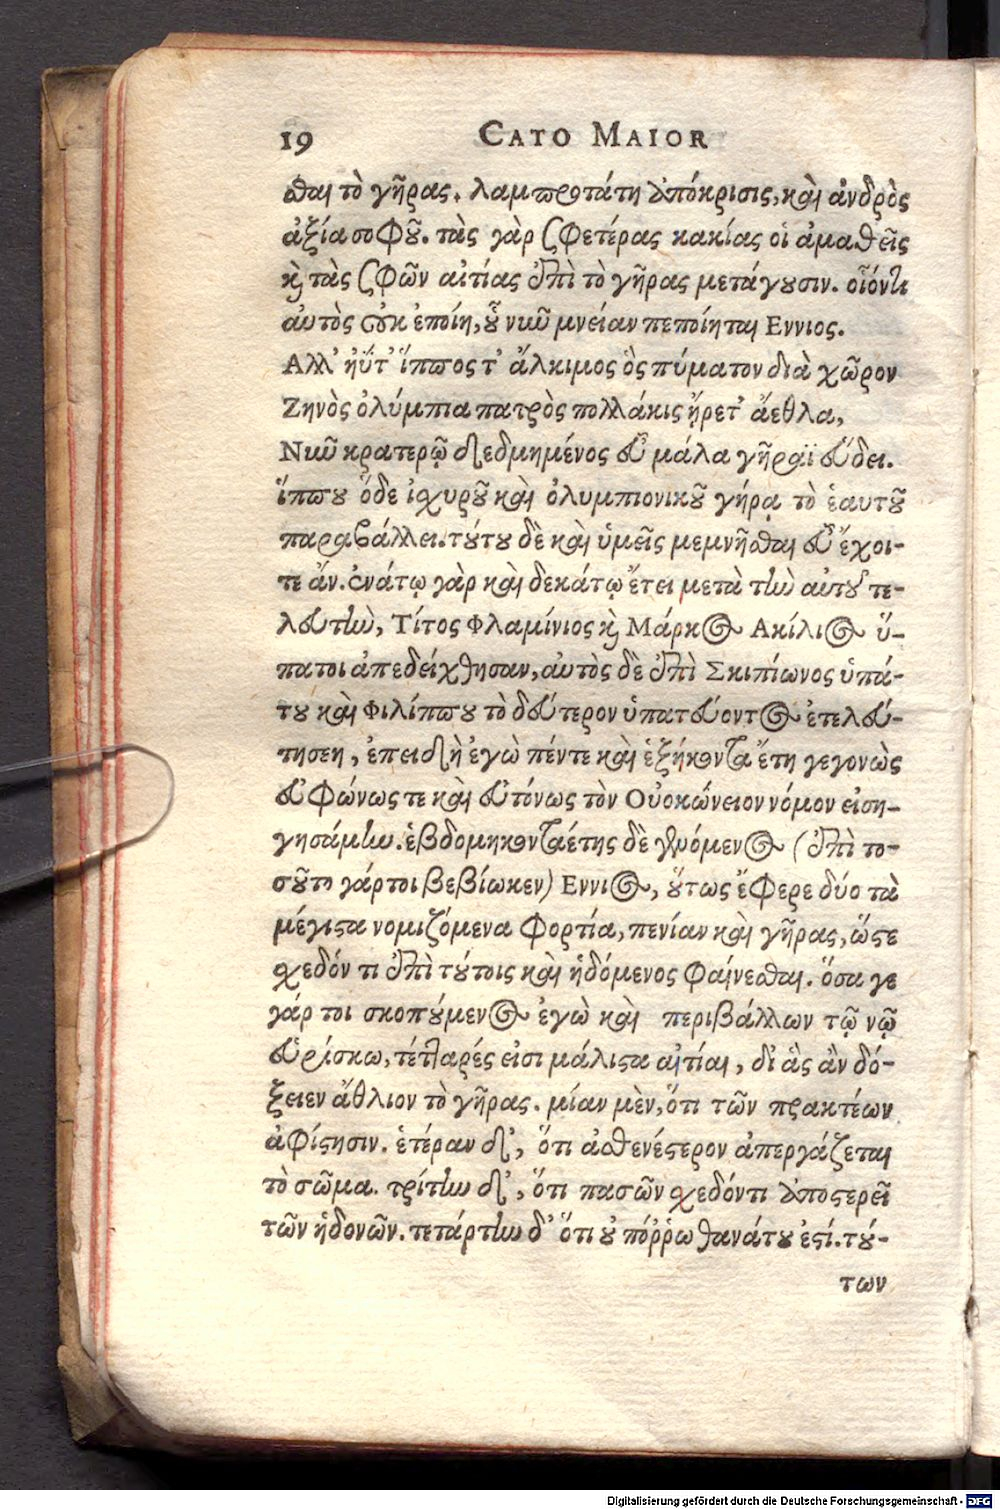 19 CATO MAIOR
σθαι τὸ γῆρας. λαμπροτάτη ὑπόκρισις, καὶ ἀνδρὸς
ἀξία σοφοῦ. τὰς γὰρ σφετέρας κακίας οἱ ἀμαθεῖς
καὶ τὰς σφῶν αἰτίας ἐπὶ τὸ γῆρας μετάγουσιν. οἷόντι
αὐτὸς οὐκ ἐποίη, οὗ νιῦ μνείαν πεποίηται Εννιος.
Αλλ' ἠΰτ' ἵππος τ' ἄλκιμος ὃς πύματον διὰ χῶρον
Ζηνὸς ὀλύμπια πατρὸς πολλάκις ᾔρετ' ἄεθλα,
Νιῦ κρατερῷ δεδμημένος εὖ μάλα γῆραϊ εὕδει.
ἵππου ὅδε ἰσχυροῦ καὶ ὀλυμπιονικοῦ γήρᾳ τὸ ἑαυτοῦ
παραβάλλει. τούτου δὲ καὶ ὑμεῖς μεμνῆσθαι εὖ ἔχοι-
τε ἄν. ἐνάτῳ γὰρ καὶ δεκάτῳ ἔτει μετὰ τὴν αὐτοῦ τε-
λευτὴν, Τίτος Φλαμίνιος καὶ Μάρκος Ακίλιος ὕ-
πατοι ἀπεδείχθησαν, αὐτὸς δὲ ἐπὶ Σκιπίωνος ὑπά-
του καὶ Φιλίππου τὸ δεύτερον ὑπατεύοντος ἐτελεύ-
τησεη, ἐπειδὴ ἐγὼ πέντε καὶ ἑξήκοντα ἔτη γεγονὼς
εὐφώνως τε καὶ εὐτόνως τὸν Οὐοκώνειον νόμον εἰση-
γησάμην. ἑβδομηκονταέτης δὲ γενόμενος (ἐπὶ το-
σοῦτο γάρτοι βεβίωκεν) Εννιος, οὕτως ἔφερε δύο τὰ
μέγιστα νομιζόμενα φορτία, πενίαν καὶ γῆρας, ὥστε
σχεδόν τι ἐπὶ τούτοις καὶ ἡδόμενος φαίνεσθαι. ὅσα γε
γάρ τοι σκοπούμενος ἐγὼ καὶ περιβάλλων τῷ νῷ
εὑρίσκω, τέτταρές εἰσι μάλιστα αἰτίαι, δι' ἃς ἂν δό-
ξειεν ἄθλιον τὸ γῆρας. μίαν μὲν, ὅτι τῶν πρακτέων
ἀφίστησιν. ἑτέραν δ', ὅτι ἀσθενέστερον ἀπεργάζεται
τὸ σῶμα. τρίτην δ', ὅτι πασῶν σχεδόντι ὑποστερεῖ
τῶν ἡδονῶν. τετάρτην δ' ὅτι οὐ πόῤῥω θανάτου ἐστί. τού-
των
Digitalisierung gefördert durch die Deutsche Forschungsgemeinschaft - DFG